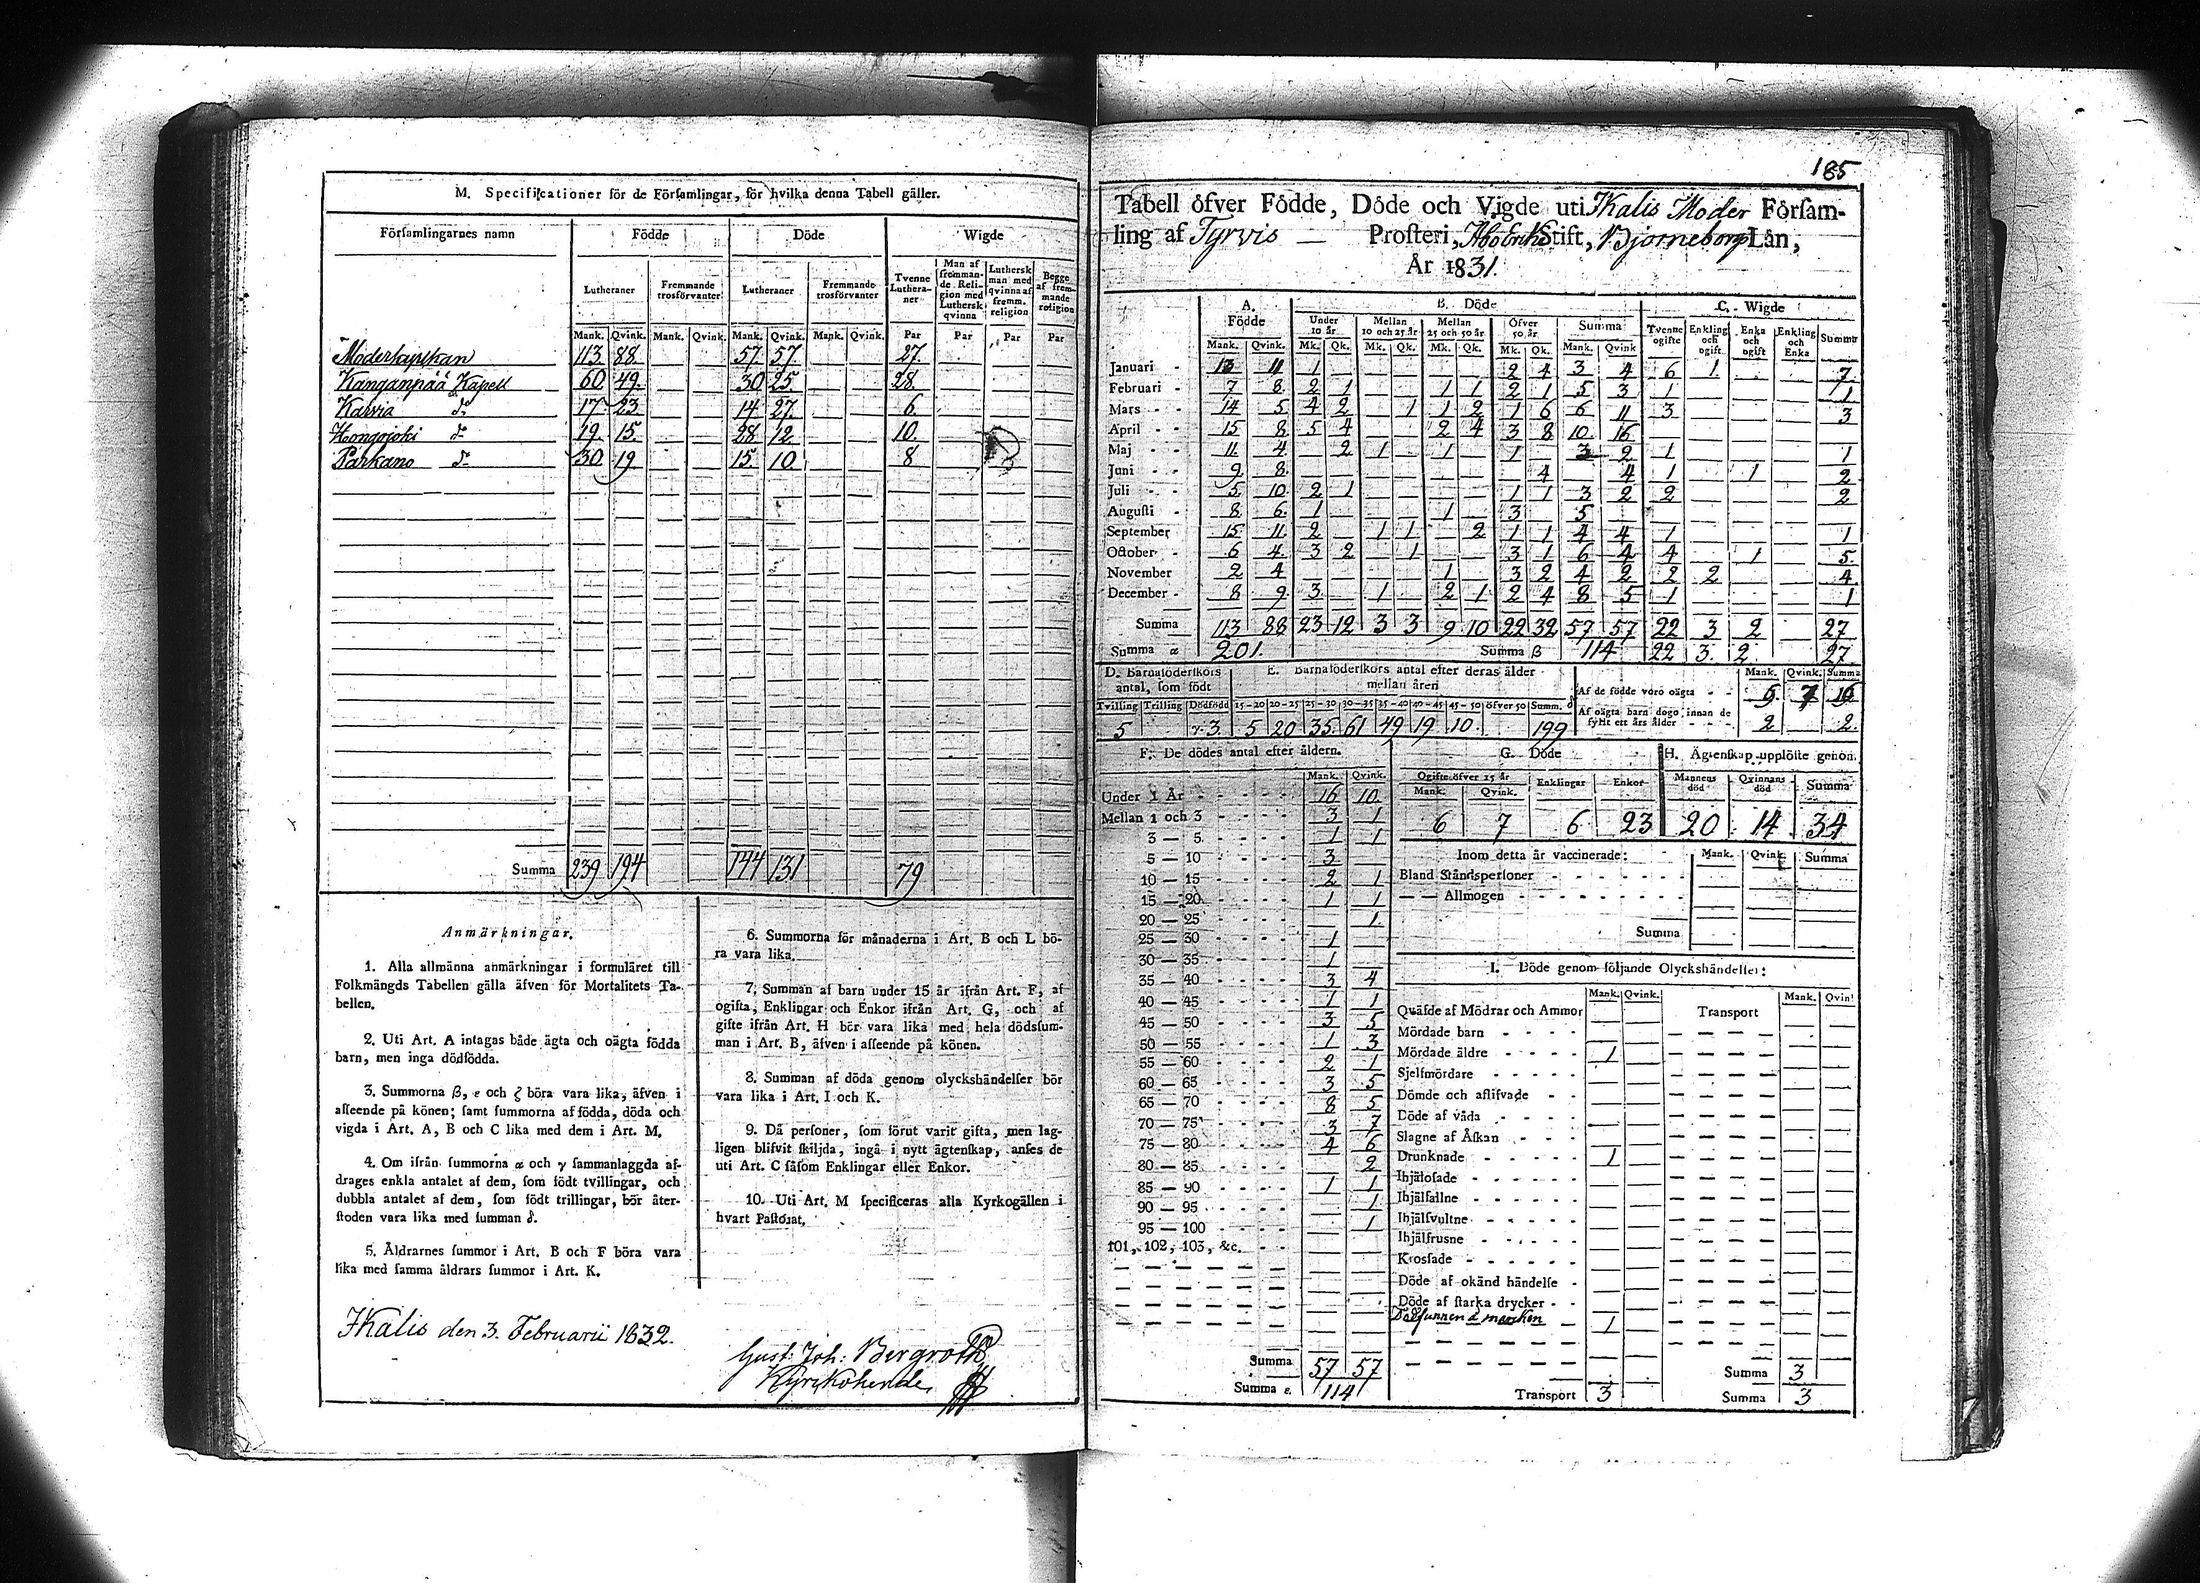 M. Specificationer för de Församlingar, för hvilka denna Tabell gäller.
Församlingarnes namn Födde Döde Wigde
Lutheraner Fremmande trosförvanter Lutheraner Fremmande trosförvanter Tvenne Lutheraner Man af fremmande Religion med Luthersk qvinna Luthersk man med qvinna af fremm. religion Begge af fremmande religion
Mank. Qvink. Mank. Qvink. Mank. Qvink. Mank. Qvink. Par Par Par Par
Moderkapellan 113 88 57 57 27
Kanganpää Kapell 60 49 30 25 28
Karvia d:o 17 23 14 27 6
Hongojoki d:o 19 15 28 12 10
Parkano d:o 30 19 15 10 8
Summa 239 194 144 131 79
Anmärkningar.
1. Alla allmänna anmärkningar i formuläret till
Folkmängds Tabellen gälla äfven för Mortalitets Ta-
bellen.
2. Uti Art. A intagas både ägta och oägta födda
barn, men inga dödfödda.
3. Summorna β, ε och ζ böra vara lika, äfven i
afseende på könen; samt summorna af födda, döda och
vigda i Art. A, B och C lika med dem i Art. M.
4. Om ifrån summorna α och γ sammanlaggda af-
drages enkla antalet af dem, som födt tvillingar, och
dubbla antalet af dem, som födt trillingar, bör åter-
stoden vara lika med summan δ.
5. Åldrarnes summor i Art. B och F böra vara
lika med samma åldrars summor i Art. K.
6. Summorna för månaderna i Art. B och L bö-
ra vara lika.
7. Summan af barn under 15 år ifrån Art. F, af
ogifta, Enklingar och Enkor ifrån Art. G, och af
gifte ifrån Art. H bör vara lika med hela dödssum-
man i Art. B, äfven i afseende på könen.
8. Summan af döda genom olyckshändelser bör
vara lika i Art. I och K.
9. Då personer, som förut varit gifta, men lag-
ligen blifvit skiljda, ingå i nytt ägtenskap, anses de
uti Art. C såsom Enklingar eller Enkor.
10. Uti Art. M specificeras alla Kyrkogällen i
hvart Pastorat.
Ikalis den 3. Februarii 1832.
Gust: Joh: Bergroth
Kyrckoherde
185
Tabell öfver Födde, Döde och Vigde uti Ikalis Moder Försam-
ling af Tyrvis Prosteri, Åbo Erke Stift, Björneborgs Län,
År 1831.
A. Födde B. Döde C. Wigde
Under 10 år Mellan 10 och 25 år Mellan 25 och 50 år Öfver 50 år Summa Tvenne ogifte Enkling och ogift Enka och ogift Enkling och Enka Summa
Mank. Qvink. Mk. Qk. Mk. Qk. Mk. Qk. Mk. Qk. Mank. Qvink
Januari 13 11 1 2 4 3 4 6 1 7
Februari 7 8 2 1 1 1 2 1 5 3 1 1
Mars 14 5 4 2 1 1 2 1 6 6 11 3 3
April 15 8 5 4 2 4 3 8 10 16
Maj 11 4 2 1 1 1 3 2 1 1
Juni 9 8 4 4 1 1 2
Juli 5 10 2 1 1 1 3 2 2 2
Augusti 8 6 1 1 3 5
September 15 11 2 1 1 2 1 1 4 4 1 1
October 6 4 3 2 1 3 1 6 4 4 1 5
November 2 4 1 3 2 4 2 2 2 4
December 8 9 3 1 2 1 2 4 8 5 1 1
Summa 113 88 23 12 3 3 9 10 22 32 57 57 22 3 2 27
Summa α 201. Summa β 114 22 3. 2 27
D. Barnaföderskors antal, som födt E. Barnaföderskors antal efter deras ålder mellan åren Mank. Qvink. Summa
Tvilling Trilling Dödfödd 15-20 20-25 25-30 30-35 35-40 40-45 45-50 öfver 50 Summ. δ
5 γ. 3. 5 20 35 61 49 19 10. 199
Af de födde voro oägta 7 16
Af oägta barn dogo innan de fyllt ett års ålder 2 2.
F. De dödes antal efter åldern.
Mank. Qvink.
Under 1 År 16 10
Mellan 1 och 3 3 1
3 — 5 1 1
5 — 10 3
10 — 15 2 1
15 — 20 1 1
20 — 25 1
25 — 30 1
30 — 35 1
35 — 40 3 4
40 — 45 1 1
45 — 50 3 5
50 — 55 1 3
55 — 60 2 1
60 — 65 3 5
65 — 70 8 5
70 — 75 3 7
75 — 80 4 6
80 — 85 2
85 — 90 1 1
90 — 95 1
95 — 100 1
101, 102, 103, &c.
Summa 57 57
Summa ε. 114
G. Döde
Ogifte öfver 15 år Enklingar Enkor
Mank. Qvink.
6 7 6 23
H. Ägtenskap upplöste genom
Mannens död Qvinnans död Summa
20 14 34
Inom detta år vaccinerade: Mank. Qvink. Summa
Bland Ståndspersoner
— — Allmogen
Summa
I. Döde genom följande Olyckshändelser:
Mank. Qvink. Mank. Qvin
Qväfde af Mödrar och Ammor Transport
Mördade barn
Mördade äldre 1
Sjelfmördare
Dömde och aflifvade
Döde af våda
Slagne af Åskan
Drunknade 1
Ihjälosade
Ihjälfallne
Ihjälsvultne
Ihjälfrusne
Krossade
Döde af okänd händelse
Döde af starka drycker
Dödfunnen å marcken 1
Summa 3
Transport 3 Summa 3